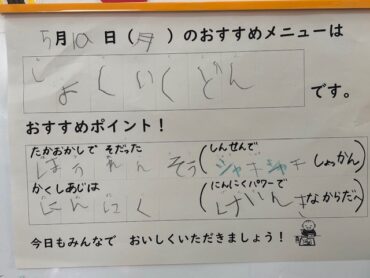 5月10日(月)のおすすめメニューは
しょくいくどん
です。
おすすめポイント!
たかおかしで そだった
ほうれんそう(しんせんで シャキシャキ しょっかん)
かくしあじは
にんにく(にんにくパワーで げんきなからだへ)
今日もみんなで おいしくいただきましょう!